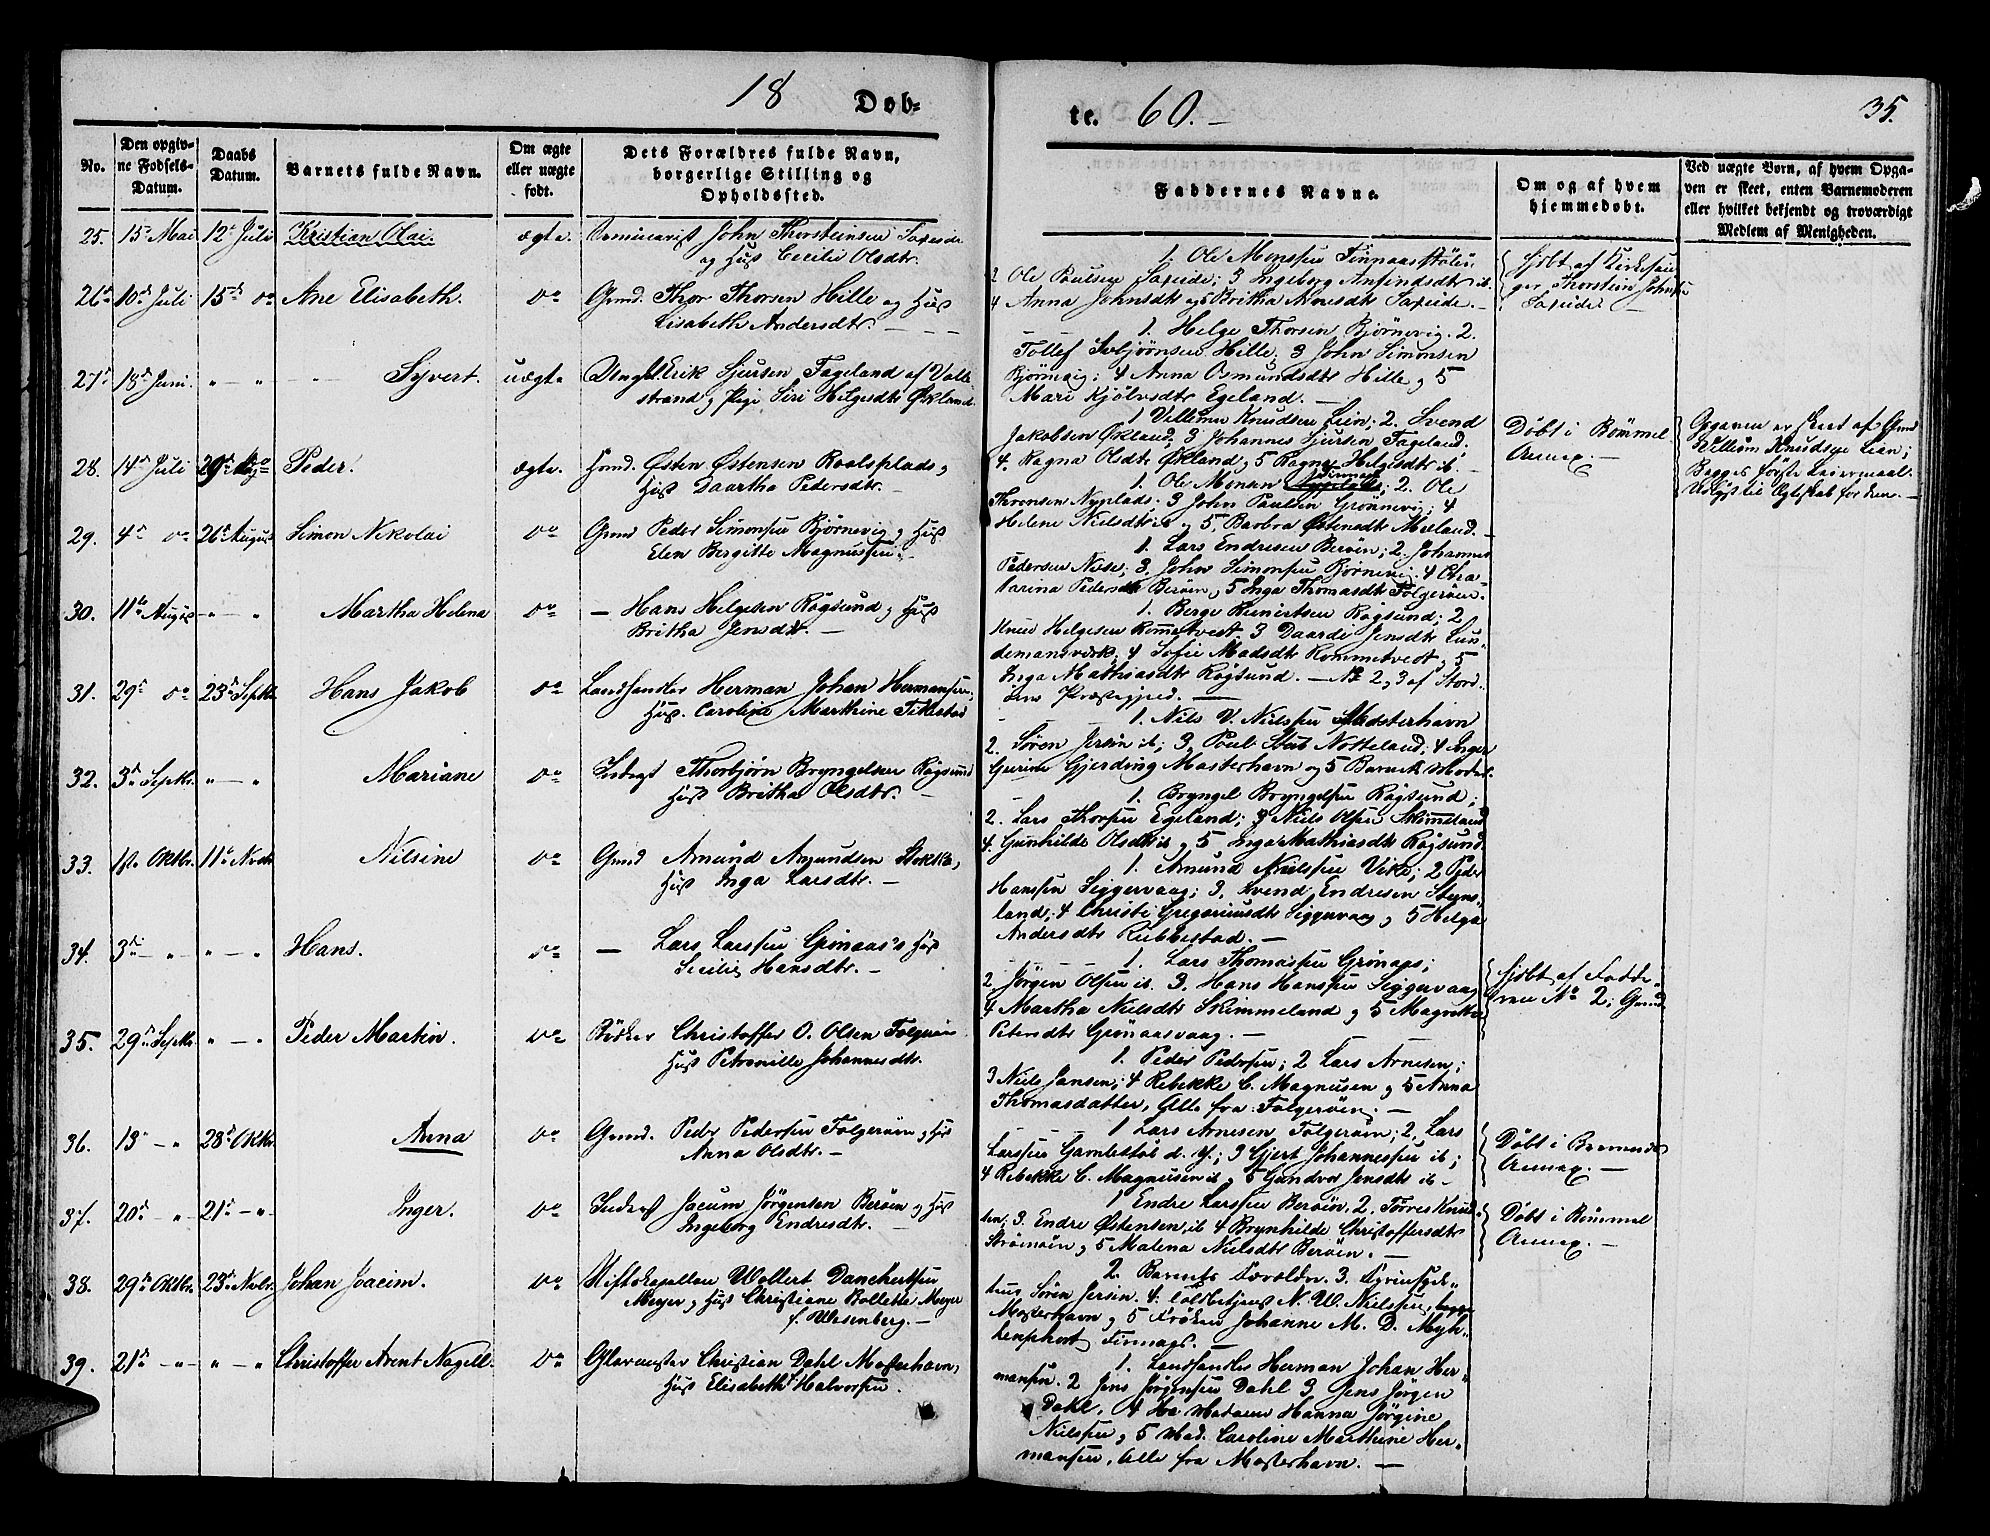 18 Døb-
te. 60.- 35.
No.
Den opgiv-
ne Fødsels-
Datum.
Daabs
Datum.
Barnets fulde Navn.
Om ægte
eller uægte
født.
Dets Forældres fulde Navn,
borgerlige Stilling og
Opholdssted.
Faddernes Navne.
Om og af hvem
hjemmedøbt.
Ved uægte Børn, af hvem Opga-
ven er skeet, enten Barnemoderen
eller hvilket bekjendt og troværdigt
Medlem af Menigheden.
25. 15 Mai 12te Juli Kristian Olai. ægte. Seminarist John Thorsteinsen
og Hust Cecilie Olsdtr.
1. Ole Monssen
2 Ole Paulsen 3 Ingeborg Anfindsdtr ib.
4 Anna Johnsdtr og 5 Britha Arnesdtr
Hjdbt af Kirkesan-
ger Thorstein Johns.
26de 10de Juli 15de do Ane Elisabeth. do Grmd. Thor Thorsen Hille og Hust
Lisabeth Andersdtr.
1. Helge Thorsen Bjørnevig. 2.
Tollef Hille; 3 John Simonsen
Bjørnevig; 4 Anna Osmundsdtr Hille og 5
Mari Kjølvsdtr Egeland.
27de 18de Juni. " - " Syvert. uægte Ungkl Erik Sjursen Fageland af
strand og Pige Siri Helgesdtr Økland.
1 Villum Knudsen Lein; 2. Svend
Jakobsen Økland; 3 Johannes Sjursen Fageland;
4. Ragna Olsdtr Økland og 5 Ragna Helgesdtr ib.
Døbt i Bømmel
Annex.
Opgaven er skeet af Grmd
Villum Knudsen Lein;
Begges første Leiermaal.
Udlyst til Ægteskab for dem.
28. 14de Juli Peder. ægte. Hmd. Østen Østensen Roalsplads og
Hust Daartha Pedersdtr.
1. Ole Monsen 2. Ole
Thronsen Nyplads; 3 John Paulsen Grønnevig; 4
Helene Nielsdtr ib og 5. Barbra Østensdtr Mæland.
29. 4de do 26de August Simon Nikolai do Grmd Peder Simonsen Bjørnevig og Hust
Elen Bergitte Magnussen.
1. Lars Endresen Berøen; 2. Johannes
Pedersen 3. John Simonsen Bjørnevig. 4 Cha-
tarina Pedersdtr Berøen og 5 Inga Thomasdtr Folgerøen.
30. 11te August " - " Martha Helena do - Hans Helgesen Røgsund og Hust
Britha Jensdtr.
1. Berge Røgsund; 2
Knud Helgesen Rommetvedt. 3 Daarde Jensdtr Lun-
demansværk; 4 Sofie Madsdtr Rommetvedt og 5
Inga Mathiasdtr Røgsund. - No 2, 3 af Stord-
øens Præstegjeld.
31. 29de do 23de Septbr. Hans Jakob do Landhandler Herman Johan Hermansen
Hust. Caroline Marthine
1. Nils V. Nielssen Mosterhavn
2. Søren Jersin ib; 3. Poul Notteland; 4 Inger
Gurine Gjerding Mosterhavn og 5 Barnets Moder.
32. 3de Septbr. " - " Mariane do Inderst Thorbjørn Bryngelsen Røgsund
Hust Britha Olsdtr.
1. Bryngel Bryngelsen Røgsund;
2. Lars Thorsen Egeland; 3 Niels Olsen Skimmeland
4. Gunhilde Olsdtr ib og 5 Inga Mathiasdtr Røgsund
33. 1ste Oktbr. 11te Novbr Nilsine do Grmd Amund Amundsen Stokka,
Hust Inga Larsdtr.
1. Amund Nielssen Vike; 2 Peder
Hanssen Siggervaag; 3. Svend Endresen Steens-
land; 4 Christi Gregoriusdtr Siggervaag og 5 Helga
Andersdtr Rubbestad.
34. 3de - " " - " Hans. do - Lars Larssen Grønaas & Hust
Cicilie Hansdtr.
1. Lars Thomassen Grønaas;
2. Jørgen Olsen ib. 3. Hans Hanssen Siggervaag
4 Martha Nielsdtr Skimmeland og 5 Magrethe
Petersdtr Grønaasvaag.
Hjdbt af Fadde-
ren No 2; Grmd
35. 29de Septbr " - " Peder Martin. do Bødker Christoffer O. Olsen Folgerøen
Hust Petronille Johannesdtr.
1. Peder Pedersen; 2 Lars Arnesen;
3 Niels Jansen; 4 Rebekke C. Magnusen og 5 Anna
Thomasdatter, Alle fra Folgerøen.
36. 13 - " 28de Oktbr. Anna do Grmd. Peder Pedersen Folgerøen og Hust
Anna Olsdtr.
1 Lars Arnesen Folgerøen; 2. Lars
Larssen Gamlestøl d. y.; 3 Gjert Johannessen ib;
4 Rebekke C. Magnusen ib og 5 Gundvor Jensdtr ib
Døbt i Bremnes
Annex.
37. 20de - " 21de - " - Inger. do Inderst Jacum Jørgensen Berøen og Hust
Ingeborg Endresdtr.
1 Endre Larssen Berøen. 2, Torres Knud-
sen; 3. Endre Østensen ib 4 Brynhilde Christoffersdtr
Strømøen og 5 Malena Nielsdtr Berøen.
Døbt i Bømmel
Annex.
38. 29de Oktbr. 23de Novbr. Johan Joacim. do Stiftskapellan Wollert Danchertsen
Meyer og Hust Christiane Bollette Meyer
f. Wesenberg.
2. Barnets Forældre. 3.
Søren Jersin. 4. Toldbetjent N. W. Nielsen, begge
Mosterhavn og 5 Frøken Johanne M. D. Myh-
lenphort Finnaas.
39. 21de - " - " - " Christoffer Arent Nagell. do Glarmester Christian Dahl Mosterhavn,
Hust Elisabeth Halvorsen.
1. Landhandler Herman Johan Her-
mansen. 2 Jens Jørgensen Dahl 3 Jens Jørgen
Dahl. 4 Madame Hanna Jørgine
Nielsen og 5 Mad. Caroline Marthine Her-
mansen. Alle fra Mosterhavn.